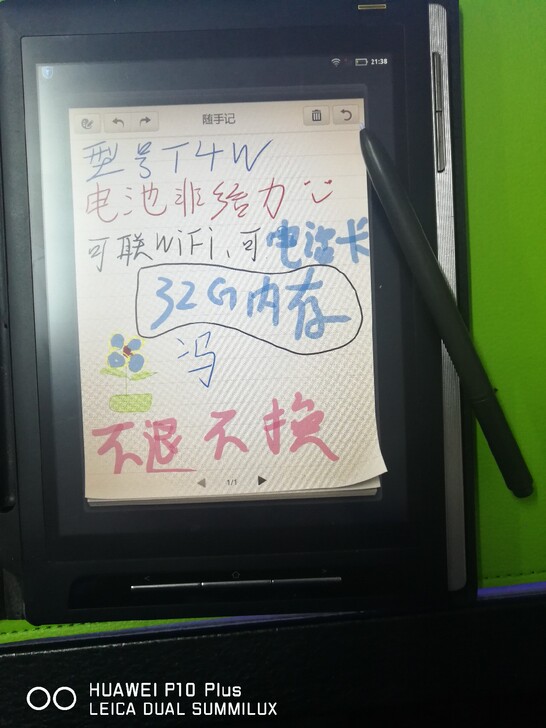 21:38
随手记
型号T4W
电池非给力
可联WiFi、可电话卡
32G内存
冯
不退不换
1/1
HUAWEI P10 Plus
LEICA DUAL SUMMILUX